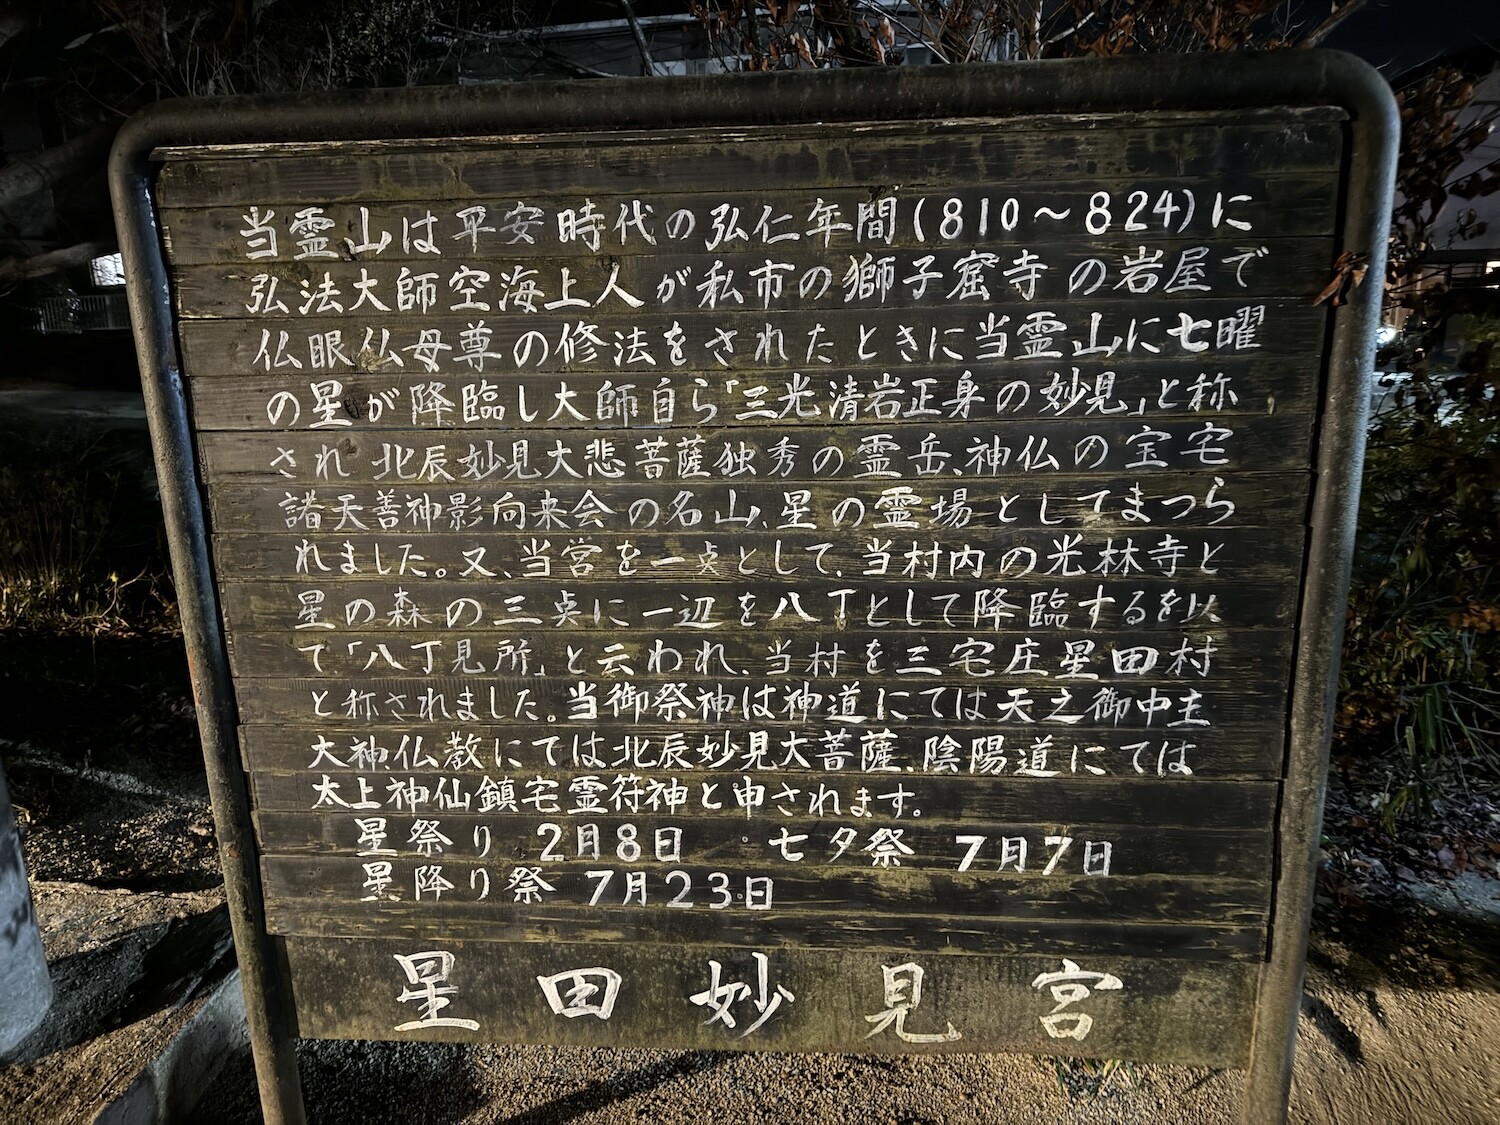 当霊山は平安時代の弘仁年間(810～824)に
弘法大師空海上人が私市の獅子窟寺の岩屋で
仏眼仏母尊の修法をされたときに当霊山に七曜
の星が降臨し大師自ら「三光清岩正身の妙見」と称
され北辰妙見大悲菩薩独秀の霊岳、神仏の宝宅
諸天善神影向来会の名山、星の霊場としてまつら
れました。又、当営を一点として、当村内の光林寺と
星の森の三点に一辺を八丁として降臨するを以
て「八丁見所」と云われ、当村を三宅庄星田村
と称されました。当御祭神は神道にては天之御中主
大神、仏教にては北辰妙見大菩薩、陰陽道にては
太上神仙鎮宅霊符神と申されます。
星祭り 2月8日 七夕祭 7月7日
星降り祭 7月23日
星田妙見宮